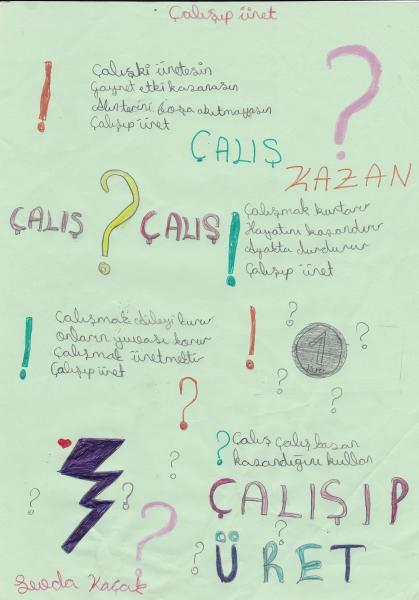 Çalışıp üret
Çalışki üretesin
Gayret etki kazanasın
Alınterini boşa akıtmayasın
Çalışıp üret
ÇALIŞ
KAZAN
ÇALIŞ ? ÇALIŞ
Çalışmak kurtarır
Hayatını kazandırır
Ayakta durdurur
Çalışıp üret
Çalışmak Aileyi kurar
onların yuvasını korur
Çalışmak üretmektir
Çalışıp üret
1
Çalış çalış kazan
kazandığını kullan
ÇALIŞIP
ÜRET
Sevda Kaçak